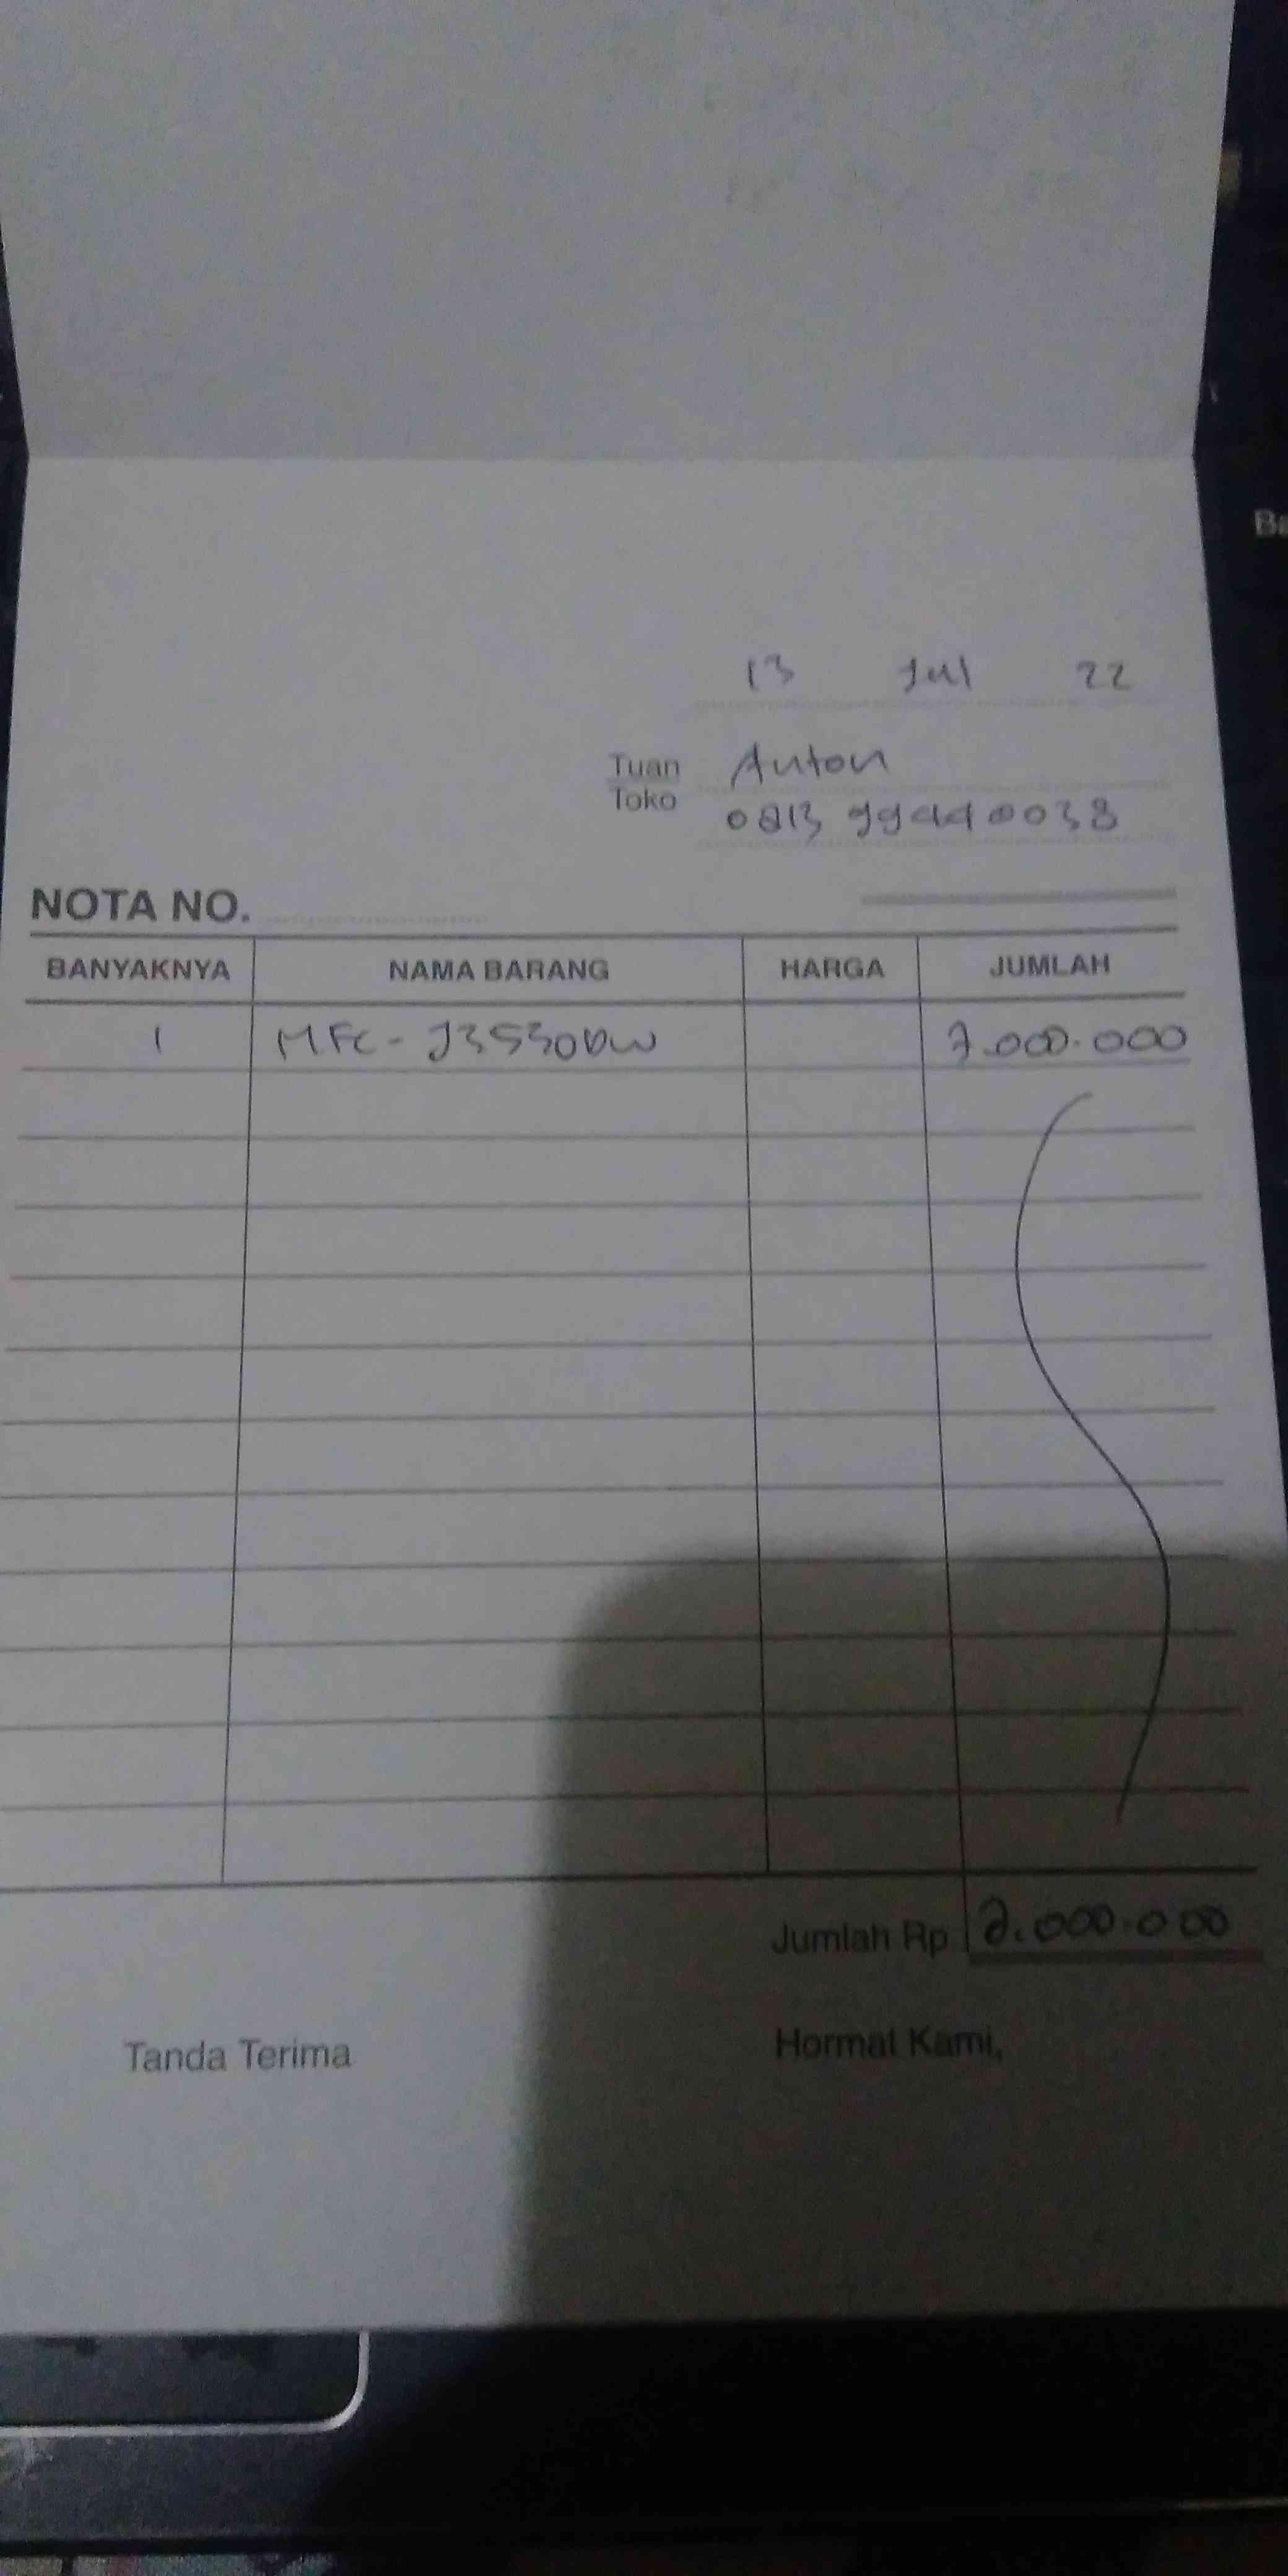 Ba
13 Jul 22
Tuan Anton
Toko 0813 99440038
NOTA NO.
BANYAKNYA NAMA BARANG HARGA JUMLAH
1 MFC - J3530DW 7.000.000
Jumlah Rp 7.000.000
Tanda Terima Hormat Kami,